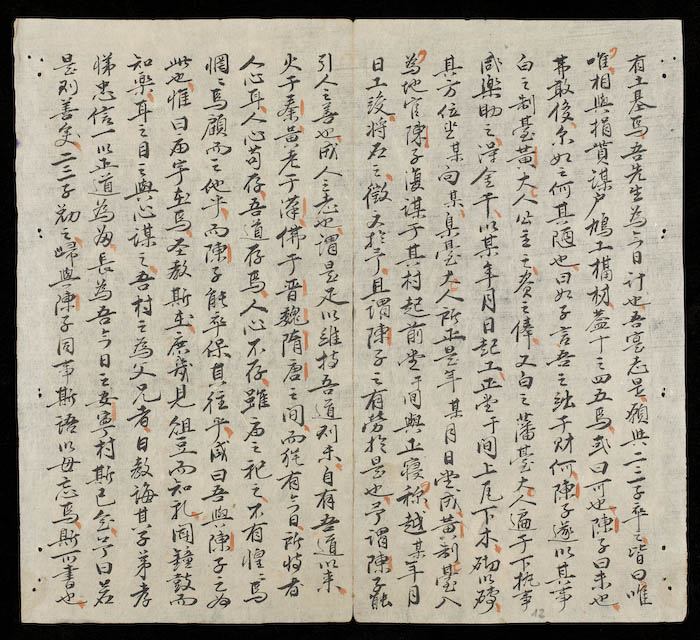 有土基焉吾先生爲今日計也吾嘗志是願與二三子卒之皆曰唯
唯相與捐貲謀戶鳩工構材蓋十之四五焉或曰可也陳子曰未也
弗敢後尔如之何其陋也曰如子言吾之詘于財何陳子遂以其事
白之制臺黃大人公主之資之俸又白之藩臺大人遍于下執事
咸樂助之得金干以某年月日起工正堂干間上瓦下木砌以磚
其方位坐某向某臬臺大人所正是年某月日堂成黃制臺入
為地官陳子復謀于其村起前堂干間與正寢稱越某年月
日工竣將石之徵文於予且謂陳子之有勞於是也予謂陳子能
引人之善也成人之志也謂是足以維持吾道則未自有吾道以來
火于秦黃老于漢佛于晉魏隋唐之間而能有今日所恃者
人心耳人心苟存吾道存焉人心不存雖廟之祀之不有惶焉
惘焉顧而之他乎而陳子能卒保其往乎咸曰吾與陳子之為
此也惟曰廟宇在焉聖教斯在庶幾見俎豆而知禮聞鐘鼓而
知樂耳之目之與心謀之吾村之為父兄者日教誨其子弟孝
悌忠信一以正道為酋長為吾今日之安寧村斯已矣予曰若
是則善矣二三子勗之歸與陳子同事斯語以毋忘焉斯可書也
12